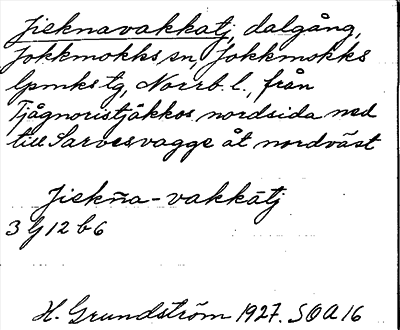 Jieknavakkatj, dalgång,
Jokkmokks sn, Jokkmokks
lpmks tg, Norrb. l., från
Tjågnoristjåkkos nordsida ned
till Sarvesvagge åt nordväst
Jiekn̄a-vakkātj
3 G 12 b 6
H. Grundström 1927. SOA 16